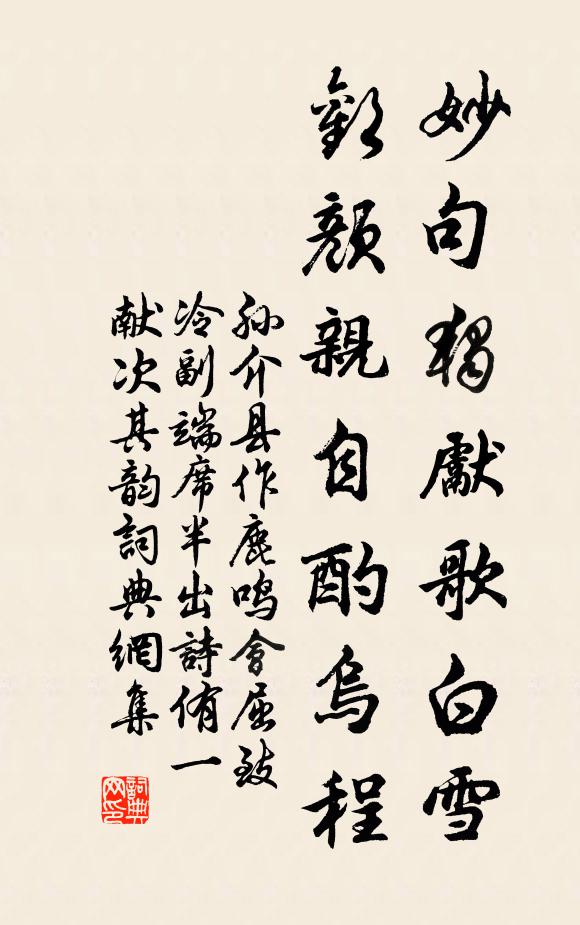 妙句獨獻歌白雪
歡顏親自酌烏程
孙介县作鹿鸣會屈致
冷副端席半出詩侑一
献次其韵詞典網集
詞典网印